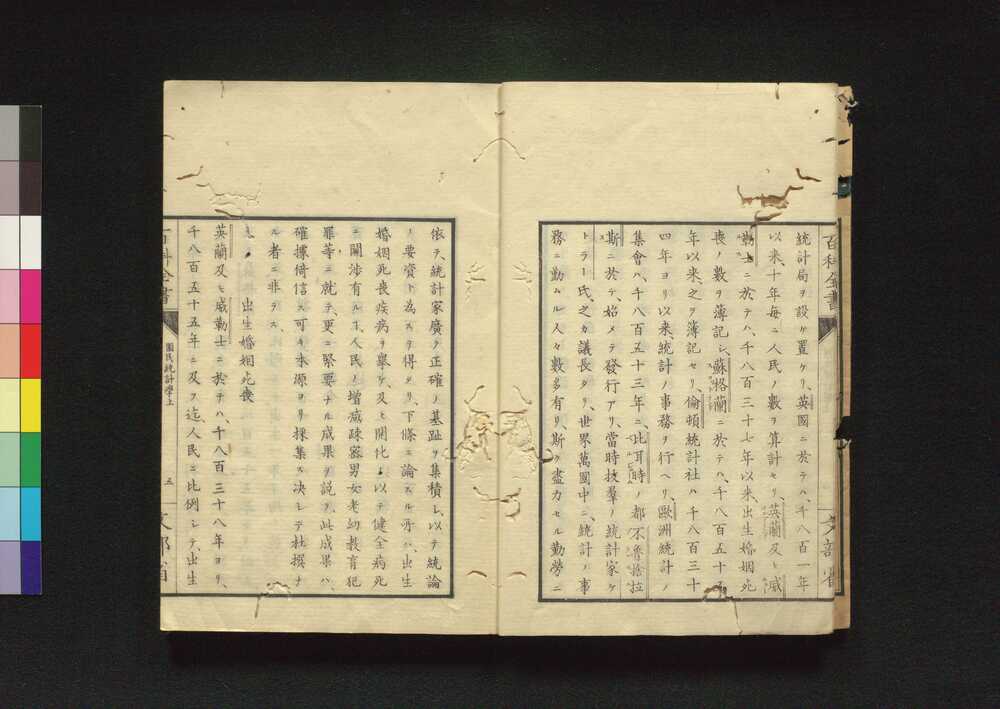 百科全書
文部省
統計局ヲ設ケ置ケリ、英國ニ於テハ、千八百一年
以来十年每ニ人民ノ數ヲ算計セリ、英蘭及ヒ威
勒士ニ於テハ、千八百三十七年以来、出生婚姻死
喪ノ數ヲ簿記シ、蘇格蘭ニ於テハ、千八百五十五
年以来、之ヲ簿記セリ、倫頓統計社ハ、千八百三十
四年ヨリ以来、統計ノ事務ヲ行ヘリ、歐洲統計ノ
集會ハ、千八百五十三年ニ、比耳時ノ都不魯捨拉
斯ニ於テ、始メテ發行アリ、當時拔羣ノ統計家ケ
トラー氏、之カ議長タリ、世界萬國中ニ、統計ノ事
務ニ勤ムル人々數多有リ、斯ク盡力セル勤勞ニ
依テ、統計家廣ク正確ノ基趾ヲ集積シ、以テ統論
ノ要資ト為スヲ得タリ、下條ニ論スル所ハ、出生
婚姻死喪疾病ヲ舉ケ及ヒ開化ヲ以テ健全病死
ニ關渉有ル了、人民ノ增減疎密男女老幼教育犯
罪等ニ就テ、更ニ緊要ナル成果ヲ説ク、此成果ハ、
確據倚信ス可キ本源ヨリ採集ス、决シテ杜撰ナ
ル者ニ非ラス、
出生婚姻死喪
英蘭及ヒ威勒士ニ於テハ、千八百三十八年ヨリ、
千八百五十五年ニ及フ迄、人民ニ比例シテ、出生
百科全書
國民統計學上
五
文部省